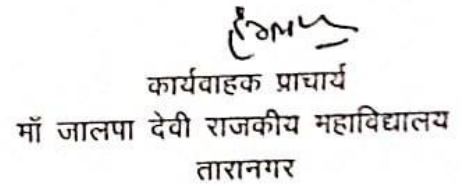 कार्यवाहक प्राचार्य
माँ जालपा देवी राजकीय महाविद्यालय
तारानगर